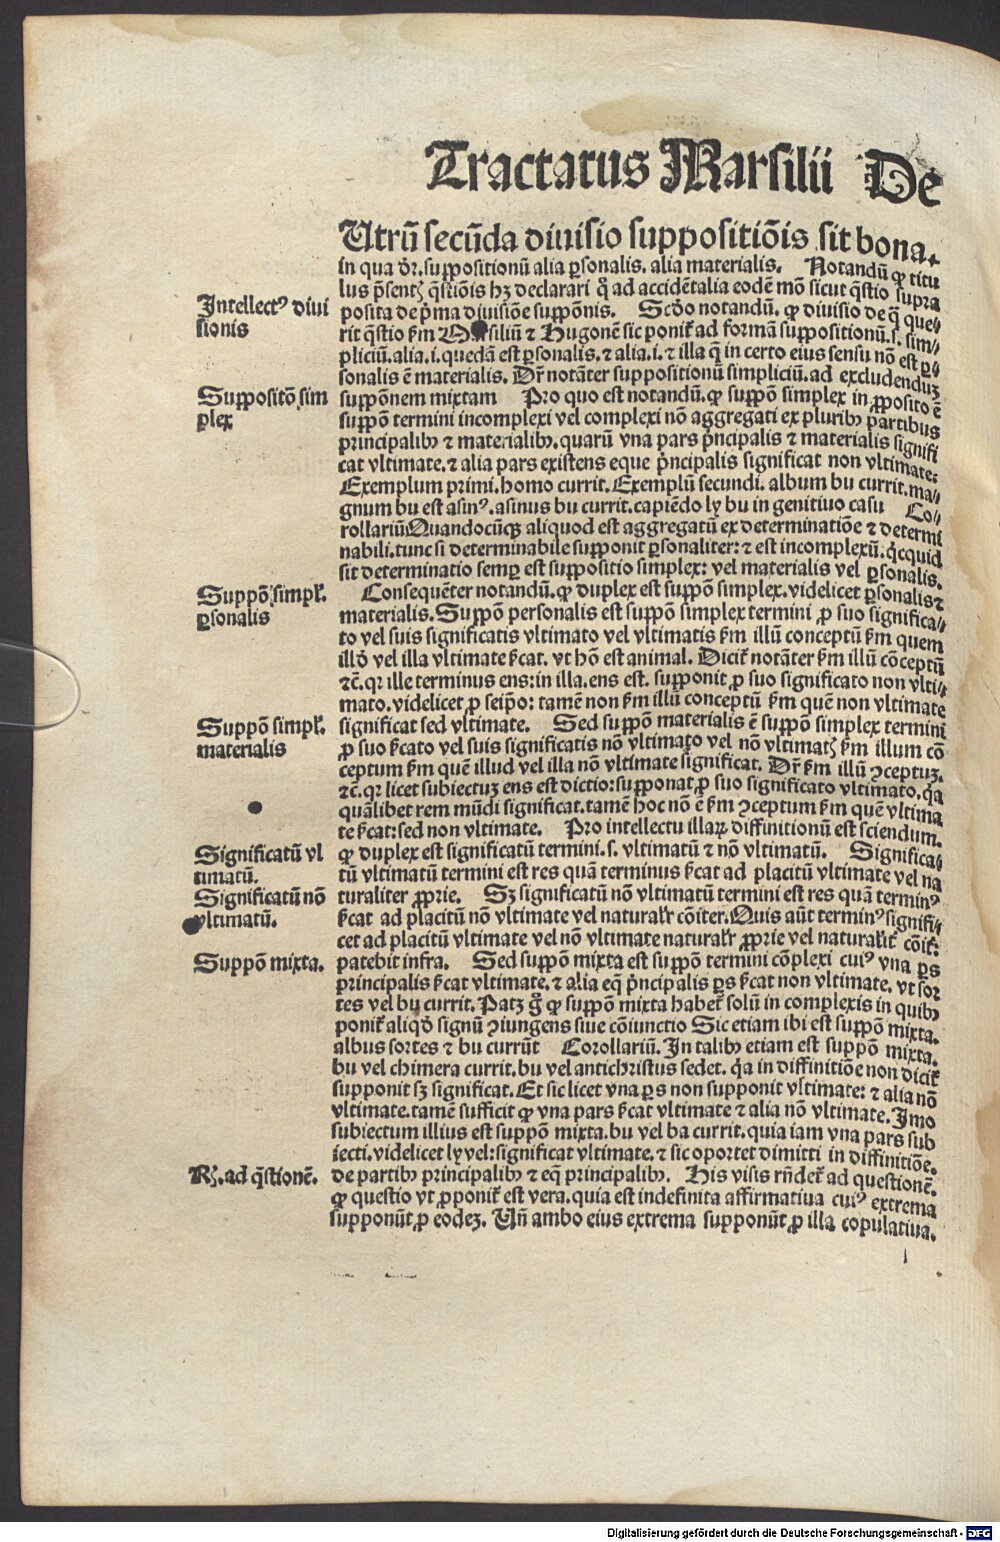 Tractatus Marsilii De
Utrũ secũda diuisio suppositiõis sit bona.
in qua dr̃. suppositionũ alia ꝑsonalis. alia materialis. Notandũ ꝙ titu
lus p̃sentꝭ q̃stiõis hꝫ declarari q̃ ad accidẽtalia eodẽ mõ sicut q̃stio supra
posita de p̃ma diuisiõe suppõnis. Scđo notandũ. ꝙ diuisio de q̃ que⸗
rit q̃stio ẜm Marsiliũ ⁊ Hugonẽ sic ponit̃ ad formã suppositionũ. s. sim⸗
pliciũ. alia. i. quedã est ꝑsonalis. ⁊ alia. i. ⁊ illa q̃ in certo eius sensu nõ est ꝑ⸗
sonalis ẽ materialis. Dr̃ notãter suppositionũ simpliciũ. ad excludenduꝫ
suppõnem mixtam Pro quo est notandũ. ꝙ suppõ simplex in ꝓposito ẽ
suppõ termini incomplexi vel complexi nõ aggregati ex pluribꝰ partibus
principalibꝰ ⁊ materialibꝰ. quarũ vna pars p̃ncipalis ⁊ materialis signifi
cat vltimate. ⁊ alia pars existens eque p̃ncipalis significat non vltimate:
Exemplum primi. homo currit. Exemplũ secundi. album bu currit. ma⸗
gnum bu est asinꝰ. asinus bu currit. capiẽdo ly bu in genitiuo casu Co⸗
rollariũ Quandocũqꝫ aliquod est aggregatũ ex determinatiõe ⁊ determi
nabili. tunc si determinabile supponit ꝑsonaliter: ⁊ est incomplexũ. q̃cquid
sit determinatio semꝑ est suppositio simplex: vel materialis vel ꝑsonalis.
Consequẽter notandũ. ꝙ duplex est suppõ simplex. videlicet ꝑsonalis ⁊
materialis. Suppõ personalis est suppõ simplex termini ꝓ suo significa⸗
to vel suis significatis vltimato vel vltimatis ẜm illũ conceptũ ẜm quem
illđ vel illa vltimate ẜcat. vt hõ est animal. Dicit̃ notãter ẜm illũ cõceptũ
⁊c̃. qꝛ ille terminus ens: in illa. ens est. supponit ꝓ suo significato non vlti⸗
mato. videlicet ꝓ seip̃o: tamẽ non ẜm illũ conceptũ ẜm quẽ non vltimate
significat sed vltimate. Sed suppõ materialis ẽ suppõ simplex termini
ꝓ suo ẜcato vel suis significatis nõ vltimato vel nõ vltimatꝭ ẜm illum cõ
ceptum ẜm quẽ illud vel illa nõ vltimate significat. Dr̃ ẜm illũ ↄceptuꝫ.
⁊c̃. qꝛ licet subiectuꝫ ens est dictio: supponat ꝓ suo significato vltimato. q̃a
quãlibet rem mũdi significat. tamẽ hoc nõ ẽ ẜm ↄceptum ẜm quẽ vltima
te ẜcat: sed non vltimate. Pro intellectu illaꝝ diffinitionũ est sciendum.
ꝙ duplex est significatũ termini. s. vltimatũ ⁊ nõ vltimatũ. Significa⸗
tũ vltimatũ termini est res quã terminus ẜcat ad placitũ vltimate vel na
turaliter ꝓprie. Sꝫ significatũ nõ vltimatũ termini est res quã terminꝰ
ẜcat ad placitũ nõ vltimate vel naturalr̃ cõiter. Quis aũt terminꝰ signifi⸗
cet ad placitũ vltimate vel nõ vltimate naturalr̃ ꝓprie vel naturalit̃ cõit̃.
patebit infra. Sed suppõ mixta est suppõ termini cõplexi cuiꝰ vna ꝑs
principalis ẜcat vltimate. ⁊ alia eq̃ p̃ncipalis ꝑs ẜcat non vltimate. vt sor
tes vel bu currit. Patꝫ g̃ ꝙ suppõ mixta habet̃ solũ in complexis in quibꝰ
ponit̃ aliqđ signũ ↄiungens siue cõiunctio Sic etiam ibi est suppõ mixta.
albus sortes ⁊ bu currũt Corollariũ. In talibꝰ etiam est suppõ mixta.
bu vel chimera currit. bu vel antichristus sedet. q̃a in diffinitiõe non dicit̃
supponit sꝫ significat. Et sic licet vna ꝑs non supponit vltimate: ⁊ alia nõ
vltimate. tamẽ sufficit ꝙ vna pars ẜcat vltimate ⁊ alia nõ vltimate. Imo
subiectum illius est suppõ mixta. bu vel ba currit. quia iam vna pars sub
iecti. videlicet ly vel: significat vltimate. ⁊ sic oportet dimitti in diffinitiõe.
de partibꝰ principalibꝰ ⁊ eq̃ principalibꝰ. His visis rñdet̃ ad questionẽ.
ꝙ questio vt ꝓponit̃ est vera. quia est indefinita affirmatiua cuiꝰ extrema
supponũt ꝓ eodeꝫ. Uñ ambo eius extrema supponũt ꝓ illa copulatiua.
Intellectꝰ diui
sionis
Suppositõ sim
plex
Suppõ simpl̃.
ꝑsonalis
Suppõ simpl̃.
materialis
Significatũ vl
timatũ.
Significatũ nõ
vltimatũ.
Suppõ mixta.
Rꝭ. ad q̃stionẽ.
Digitalisierung gefördert durch die Deutsche Forschungsgemeinschaft - DFG